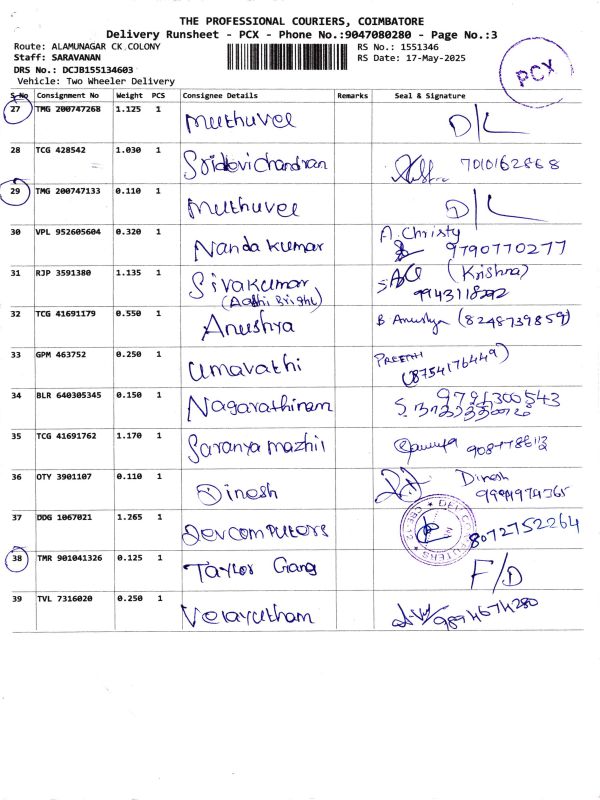 THE PROFESSIONAL COURIERS, COIMBATORE
Delivery Runsheet - PCX - Phone No.:9047080280 - Page No.:3
Route: ALAMUNAGAR CK COLONY
RS No.: 1551346
Staff: SARAVANAN
RS Date: 17-May-2025
DRS No.: DCJB155134603
Vehicle: Two Wheeler Delivery
PCX
S.No Consignment No Weight PCS Consignee Details Remarks Seal & Signature
27 TMG 200747268 1.125 1 Muthuvel D/L
28 TCG 428542 1.030 1 Sridevi chandran 7010162868
29 TMG 200747133 0.110 1 Muthuvel D/L
30 VPL 952605604 0.320 1 Nanda kumar A. Christy
9790770277
31 RJP 3591380 1.135 1 Sivakumar (Krishna)
(Aathi Bright)
32 TCG 41691179 0.550 1 Anushya B Anushya (8248739859)
33 GPM 463752 0.250 1 umavathi PREETHI
(8754176449)
34 BLR 640305345 0.150 1 Nagarathinam 9791300543
35 TCG 41691762 1.170 1 Saranya mazhil
36 OTY 3901107 0.110 1 Dinesh Dinesh
37 DDG 1067021 1.265 1 Devcomputers 8072752264
DEV COMPUTERS
38 TMR 901041326 0.125 1 Taylor Gang F/D
39 TVL 7316020 0.250 1 Velayutham 9894674280